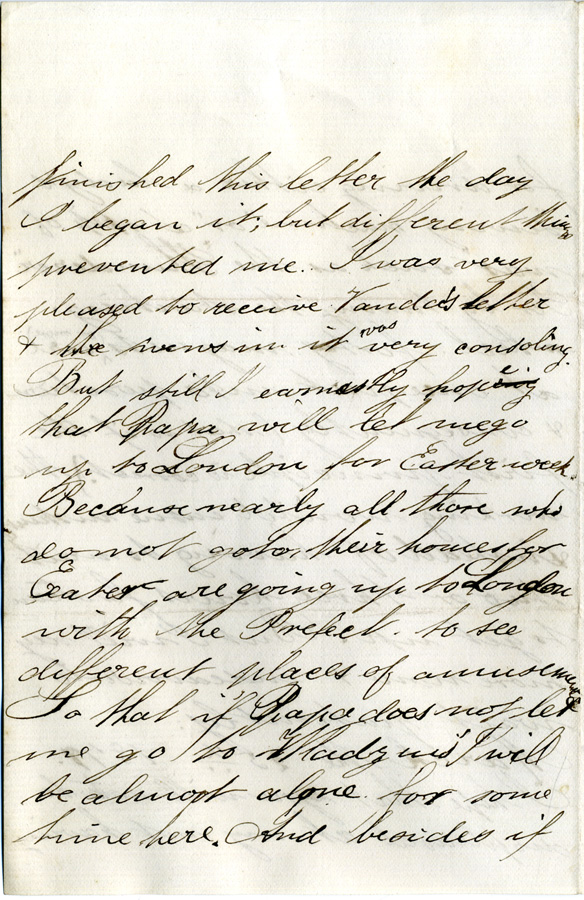 finished this letter the day
I began it; but different thing
prevented me. I was very
pleased to receive Vanda's letter
& the news in it was very consoling.
But still I earnestly hope
that Papa will let me go
up to London for Easter week.
Because nearly all those who
do not go to their homes for
Eater are going up to London
with the Prefect. to see
different places of amusement
So that if Papa does not let
me go to Madzia's I will
be almost alone for some
time here. And besides if